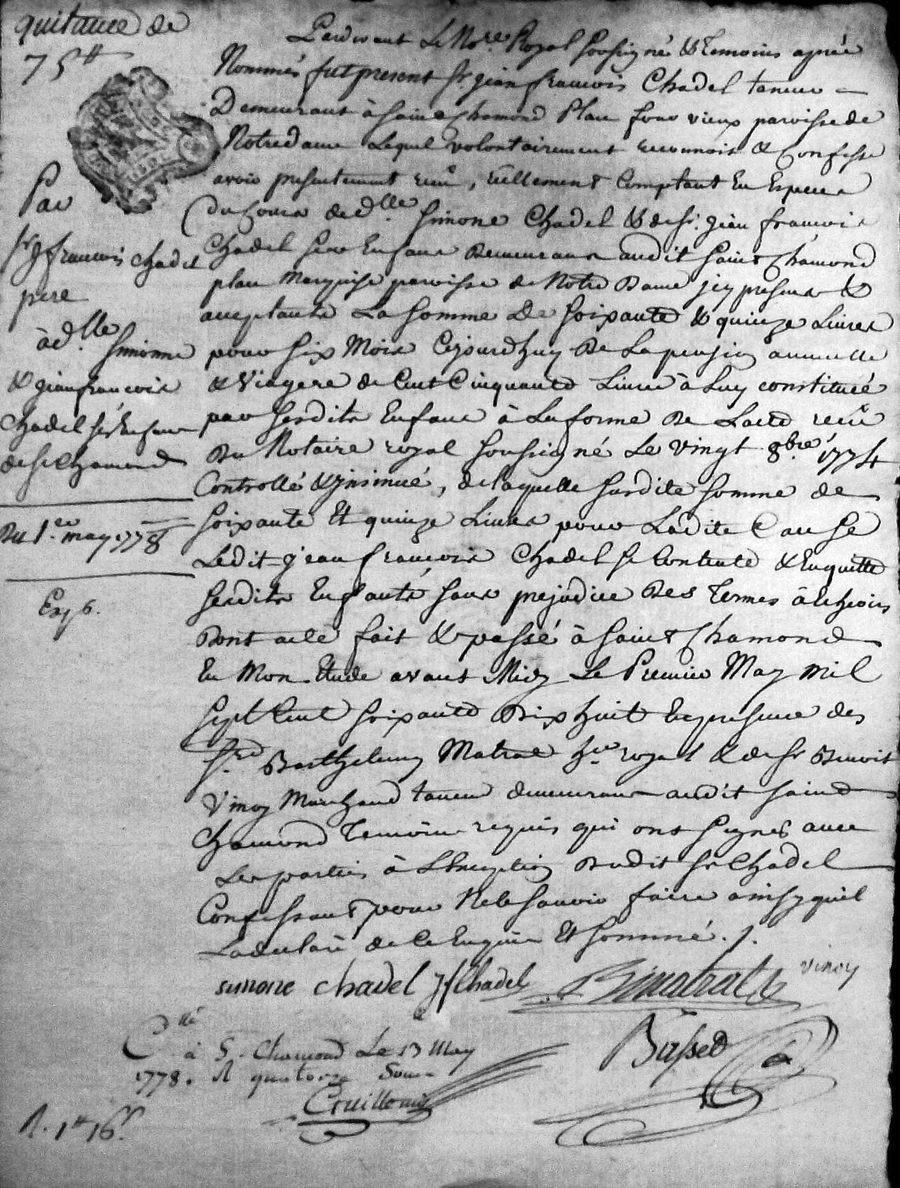 quitance de
75tt
Par
sr j francois chadel
pere
à dlle simonne
& jean francois
chadel ses Enfans
de St. chamond
Du 1.er may 1778
Exp.
Pardevant Le No.re Royal soussigné & temoins après
Nommés fut present sr. jean francois Chadel taneur
Demeurant à Saint Chamond Place four vieux paroisse de
Notre dame Lequel volontairement reconnoit & Confesse
avoir presentement reçu, réellement Comptant En Especes
du Cours de dlle Simone Chadel & de sr. jean francois
Chadel ses Enfans Demeurans audit Saint Chamond
place Marquise paroisse de Notre Dame jcy presens &
acceptants La somme De soixante & quinze Livres
pour six Mois Cejourdhuy De La pension annuelle
& Viagere de Cent Cinquante Livres à Luy constituée
par sesdits Enfans à La forme De Lacte reçu
Du Notaire royal soussigné Le vingt 8bre 1774
Controllé & jnsinué, de laquelle susdite somme de
soixante Et quinze Livres pour Ladite Cause
Ledit jean françois Chadel se Contente & En quitte
sesdits Enfants sans prejudice Des Termes à Echeoir
Dont acte fait & passé à Saint Chamond
En Mon Etude avant Midy Le Premier May Mil
sept Cent soixante Dix huit En presence des
srs Barthelemy Matrat hr. royal & de sr Benoit
Vinoy Marchand taneur demeurans audit Saint
Chamond Temoins requis qui ont signés avec
Les parties à L'Exception Dudit sr. Chadel
Confessant pour Ne le sçavoir faire ainsy quil
La declaré de Ce Enquis Et sommé.
simone chadel jf Chadel Bmatrat vinoy
Basset
Clle à S. Chamond Le 13 May
1778. R quatorze sous
R. 1tt 16s